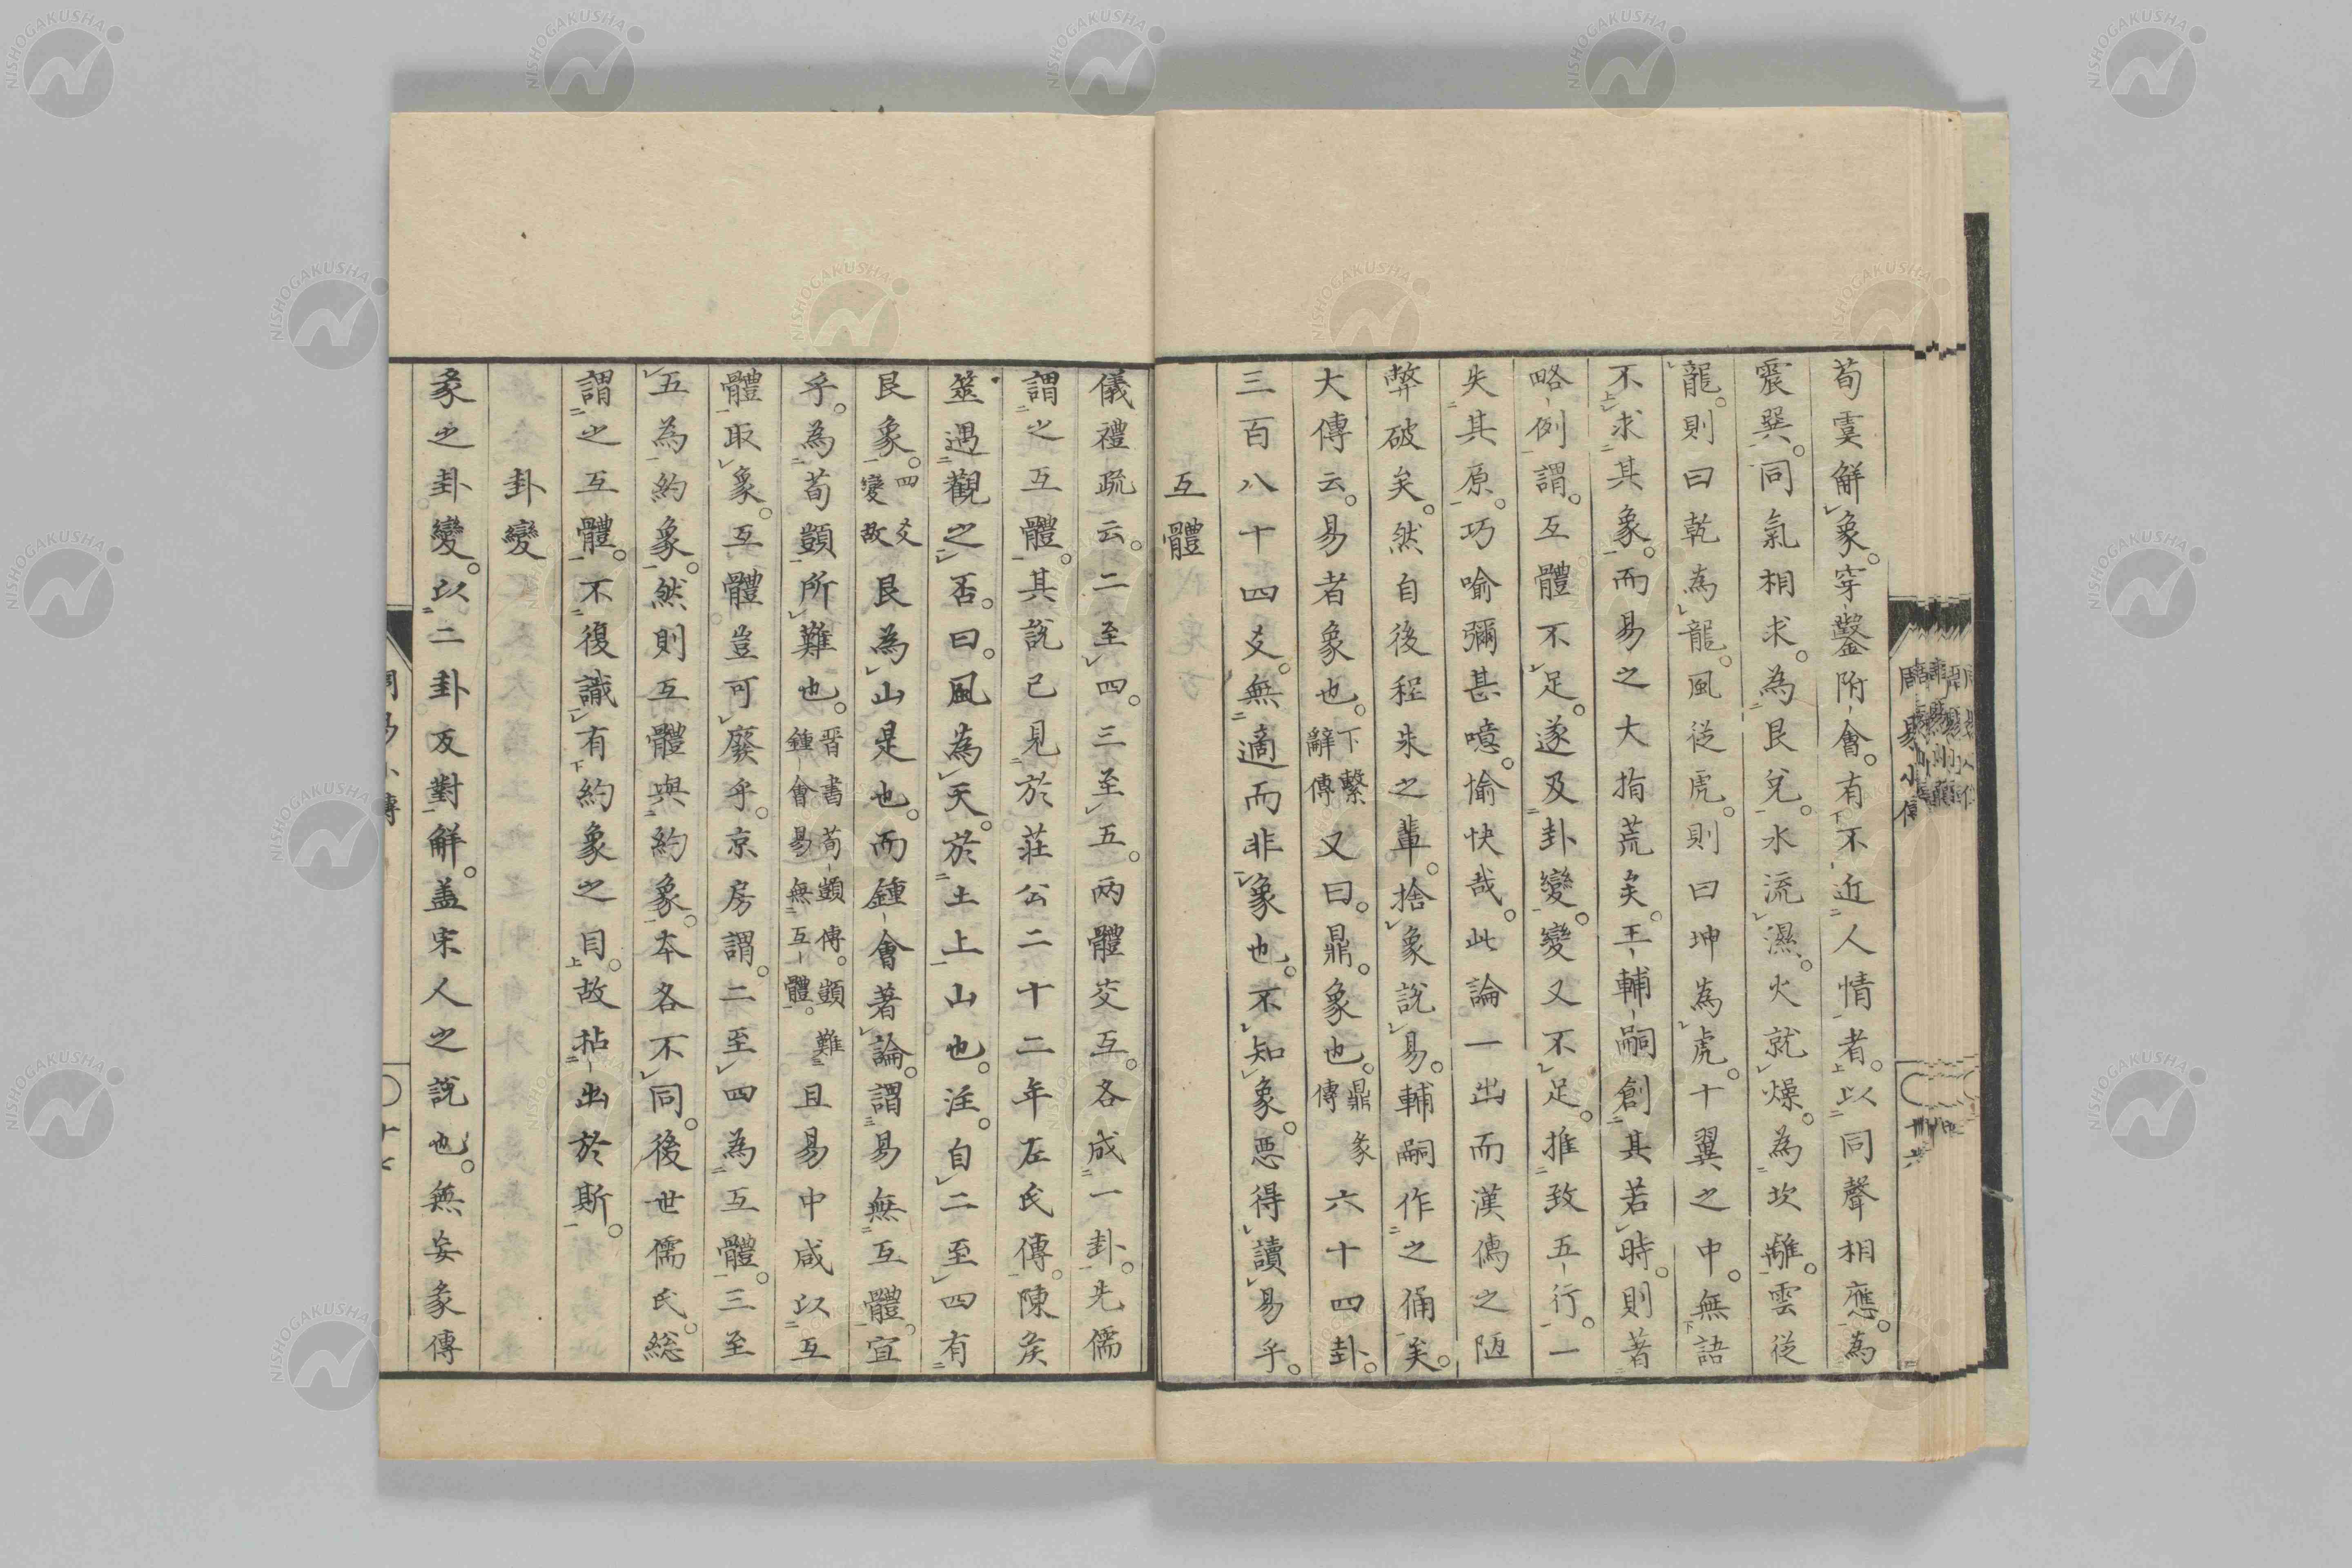 荀虞解象。穿鑿附會。有不近人情者。以同聲相應。為
震巽。同氣相求。為艮兌。水流濕。火就燥。為坎離。雲從
龍。則曰乾為龍。風從虎。則曰坤為虎。十翼之中。無語
不求其象。而易之大指荒矣。王輔嗣創其若時。則著
略例謂。互體不足。遂及卦變。變又不足。推致五行。一
失其原。巧喻彌甚噫。愉快哉。此論一出而漢儒之陋
弊破矣。然自後程朱之輩。捨象說易。輔嗣作之俑矣。
大傳云。易者象也。下繫辭傳又曰。鼎。象也。鼎彖傳六十四卦。
三百八十四爻。無適而非象也。不知象。惡得讀易乎。
互體
儀禮疏云。二至四。三至五。兩體交互。各成一卦。先儒
謂之互體。其說已見於莊公二十二年左氏傳。陳侯
筮遇觀之否。曰。風為天。於土上山也。注。自二至四有
艮象。四爻變故艮為山是也。而鍾會著論。謂易無互體。宜
乎。為荀顗所難也。晉書荀顗傳。顗難鍾會易無互體。且易中咸以互
體取象。互體豈可廢乎。京房謂。二至四為互體。三至
五為約象。然則互體與約象。本各不同。後世儒氏。総
謂之互體。不復識有約象之目。故拈出於斯。
卦變
彖之卦變。以二卦反對解。盖宋人之說也。無妄彖傳
周易小傳
十六
NISHOGAKUSHA